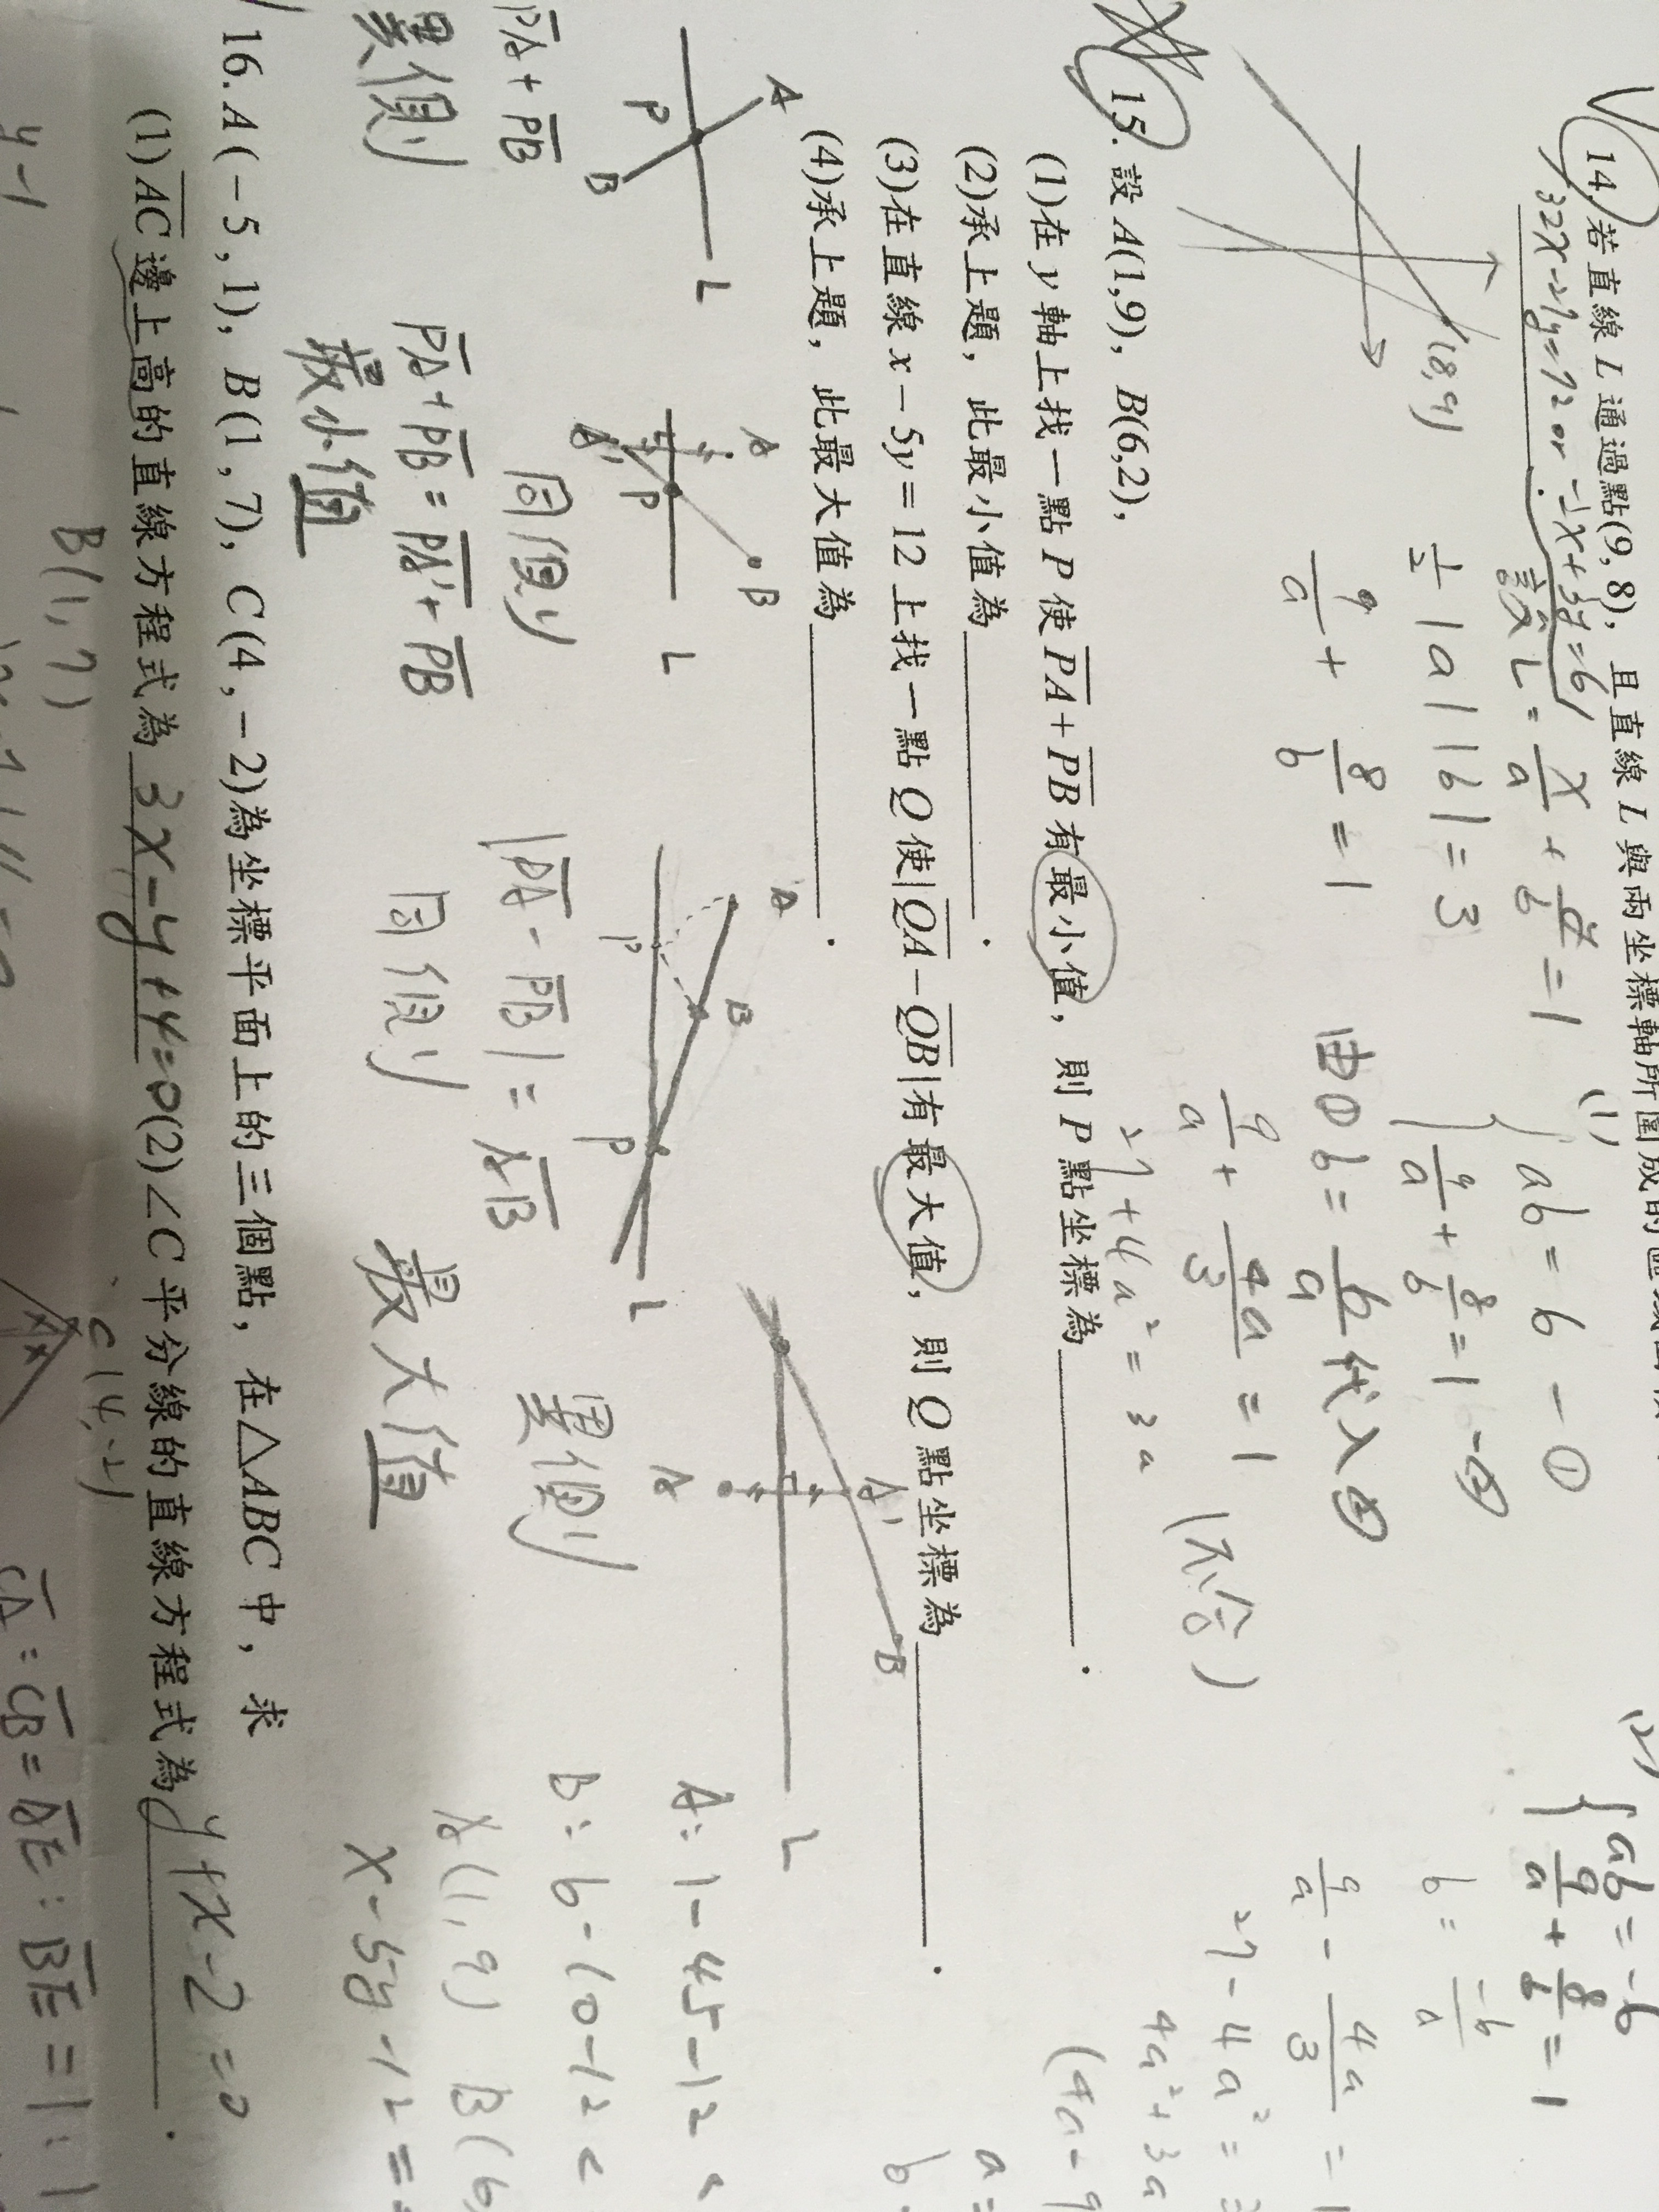 14. 若直線 L 通過點(9,8), 且直線 L 與兩坐標軸所圍成的
32x-27y=72 or
設 L = x/a + y/b = 1
1/2 |a||b| = 3
9/a + 8/b = 1
(1)
{ ab = 6 - ①
9/a + 8/b = 1 - ②
由① b = 6/a 代入②
9/a + 4a/3 = 1
27 + 4a² = 3a (不合)
(2)
{ ab = -6
9/a + 8/b = 1
b = -6/a
9/a - 4a/3 = 1
27 - 4a² =
4a² + 3a
(4a - 9
a =
b
15. 設 A(1,9), B(6,2),
(1)在 y 軸上找一點 P 使 PA + PB 有最小值, 則 P 點坐標為
(2)承上題, 此最小值為
(3)在直線 x - 5y = 12 上找一點 Q 使|QA - QB|有最大值, 則 Q 點坐標為
(4)承上題, 此最大值為
A
P
B
L
A
A'
P
B
L
A
B
P'
P
L
A
A'
B
L
PA + PB
異側
同側
PA + PB = PA' + PB
最小值
|PA - PB| = AB
同側
異側
最大值
A: 1 - 45 - 12 <
B: 6 - 10 - 12 <
A(1,9) B(6,
x - 5y - 12 =
16. A(-5,1), B(1,7), C(4,-2)為坐標平面上的三個點, 在△ABC 中, 求
(1) AC 邊上高的直線方程式為 3x-y+4=0 (2)∠C 平分線的直線方程式為 y+x-2=0
B(1,7)
C(4,-2)
CA : CB = AE : BE = 1 : 1
y-1